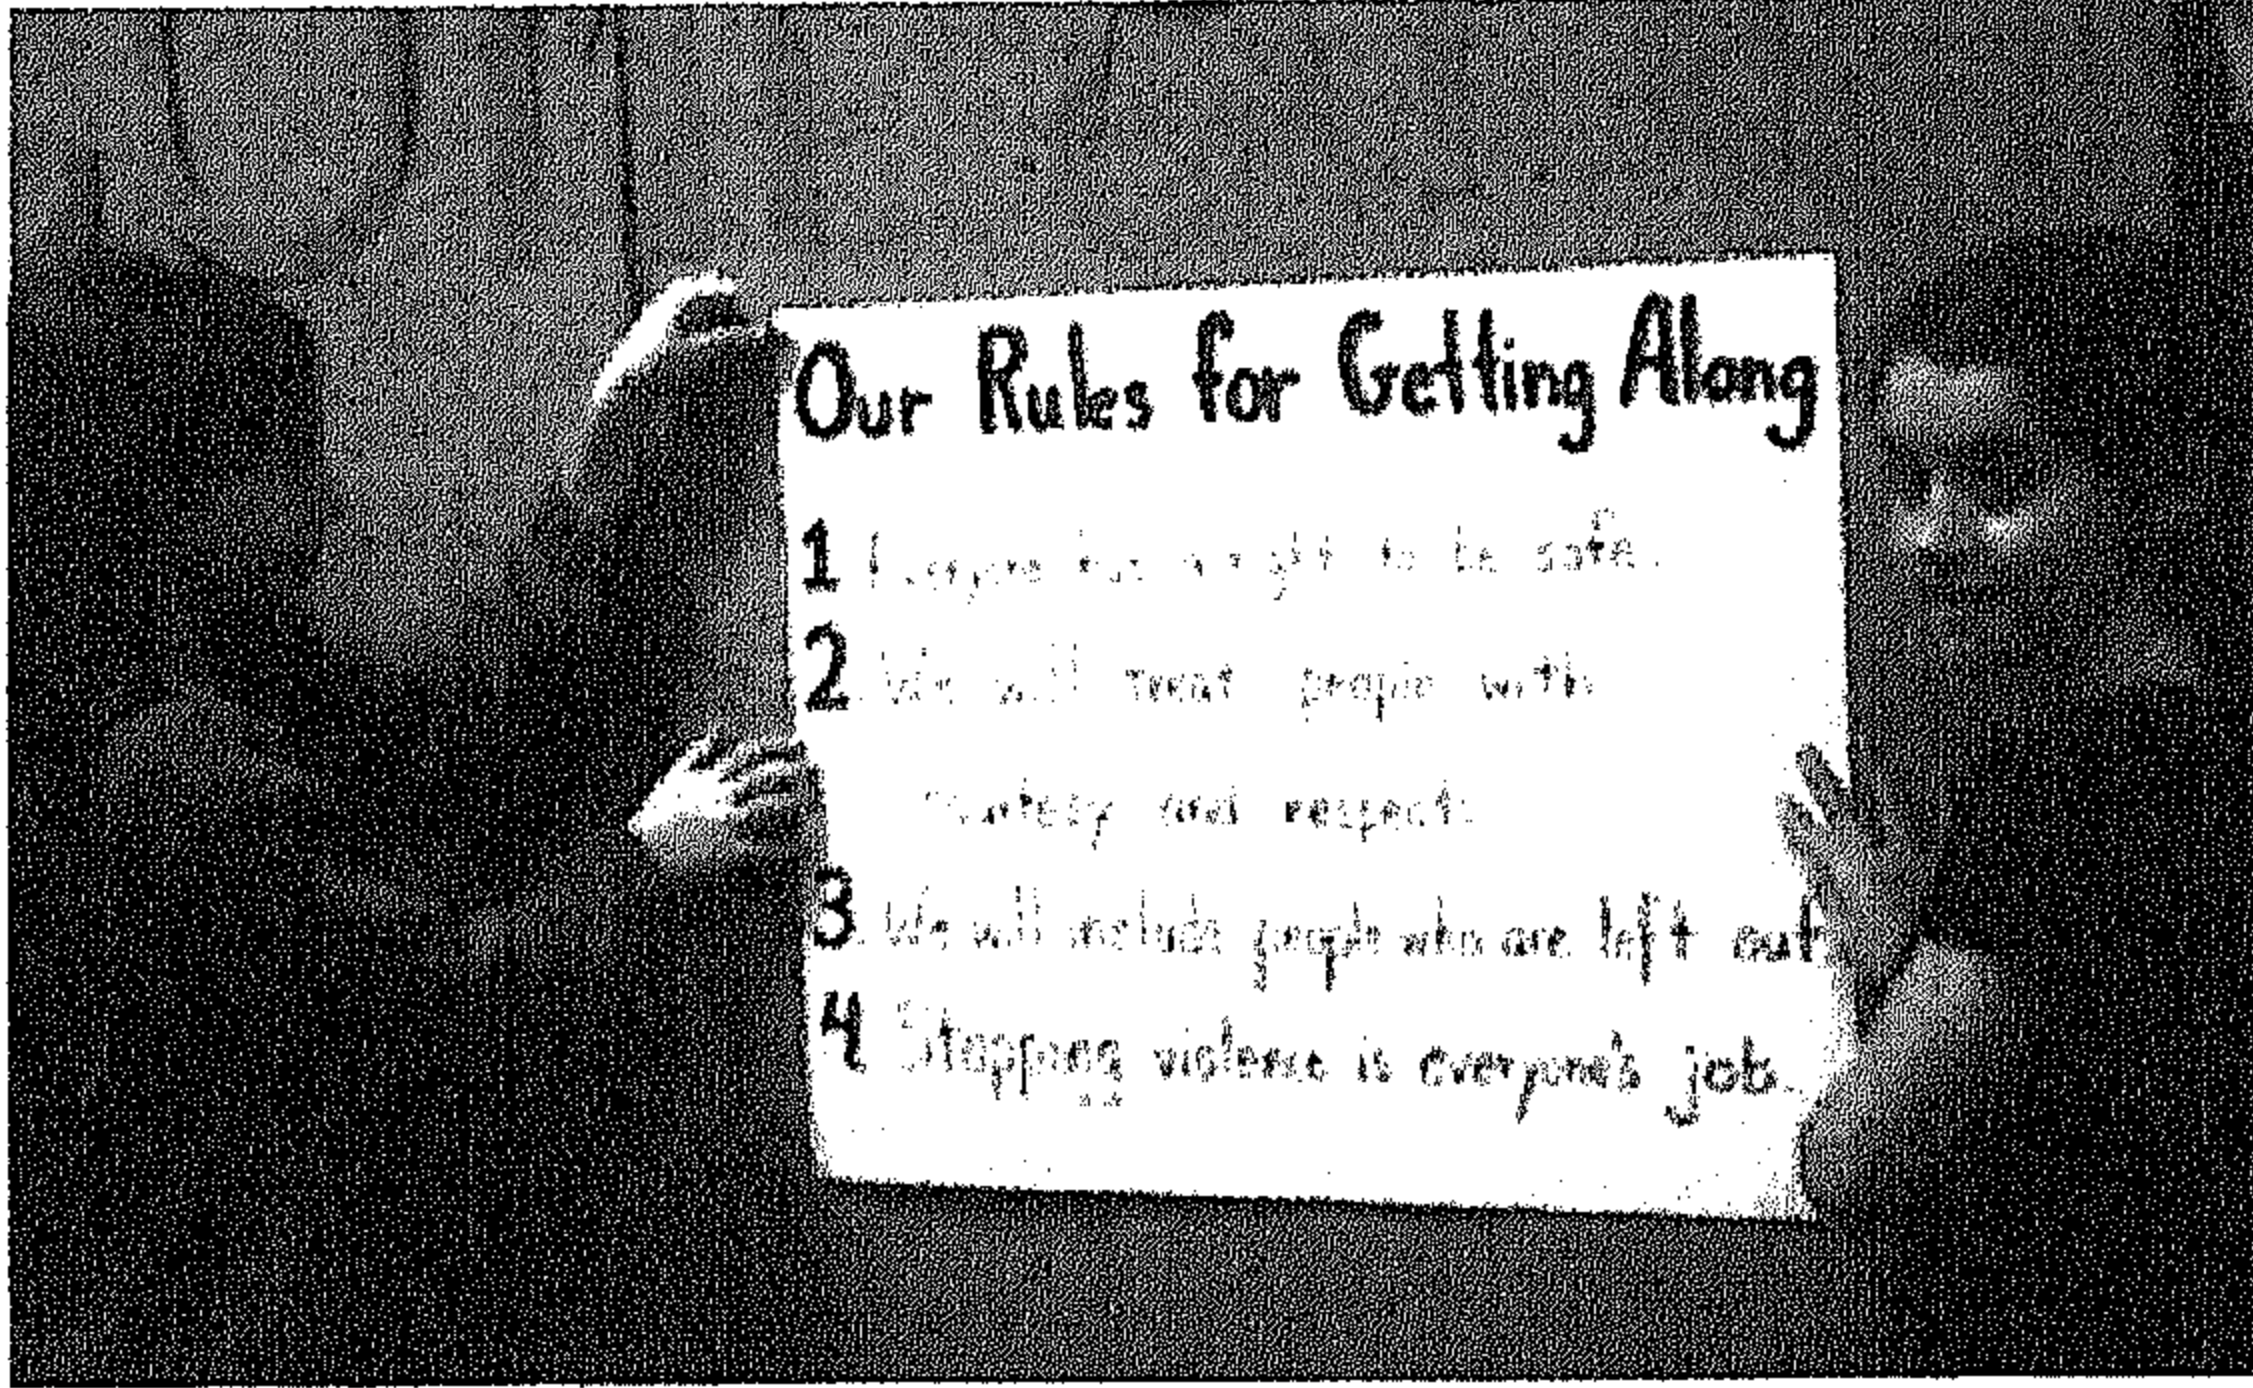 Our Rules for Getting Along
1 Everyone has a right to be safe.
2. We will treat people with
courtesy and respect.
3. We will include people who are left out.
4 Stopping violence is everyone's job.